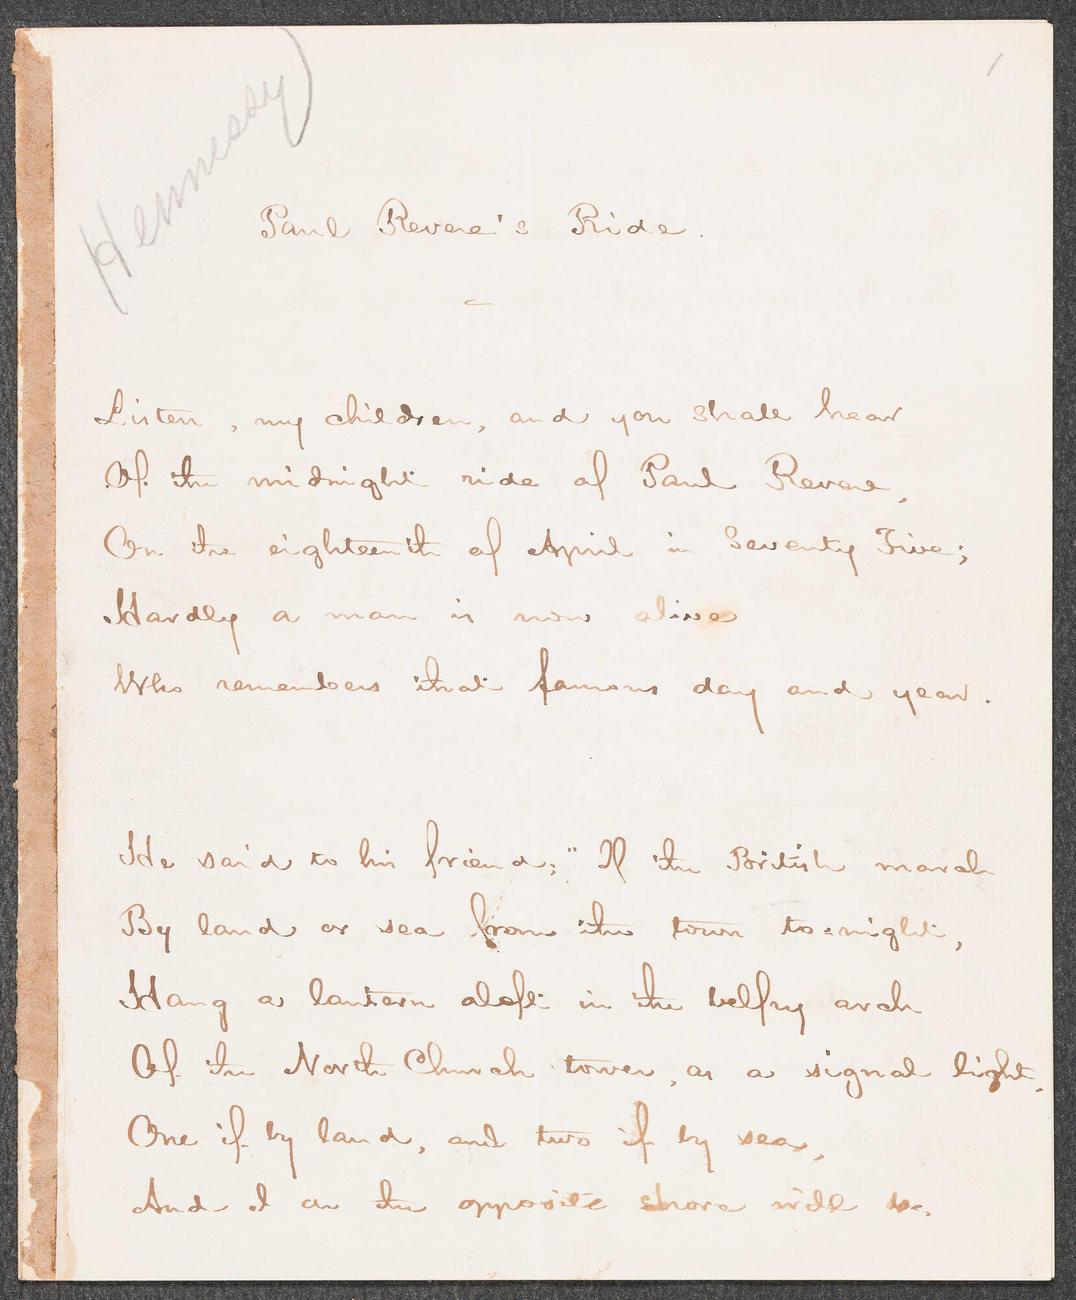 Hennessy)
Paul Revere's Ride.
Listen, my children, and you shall hear
Of the midnight ride of Paul Revere,
On the eighteenth of April in Seventy Five;
Hardly a man is now alive
Who remembers that famous day and year.
He said to his friend; "If the British march
By land or sea from the town to-night,
Hang a lantern aloft in the belfry arch
Of the North Church tower, as a signal light.
One if by land, and two if by sea,
And I on the opposite shore will be,